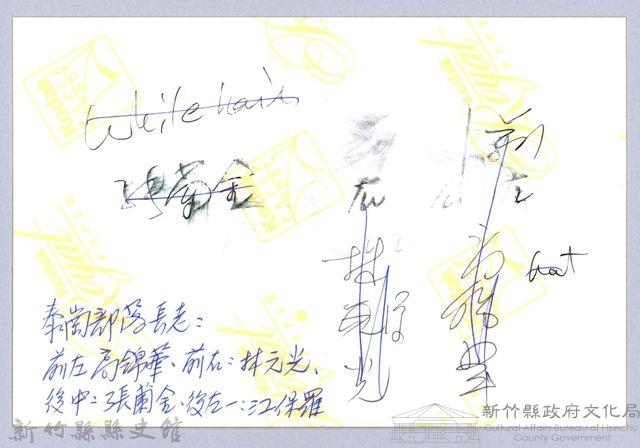 White hair
張蘭金
前
左
右
林元光
hat
泰崗部落長老：
前左高錦華、前右：林元光、
後中：張蘭金、後左一：江保羅
新竹縣縣史館
新竹縣政府文化局
Cultural Affairs Bureau of Hsinchu
County Government
Kodak
Royal
PAPER